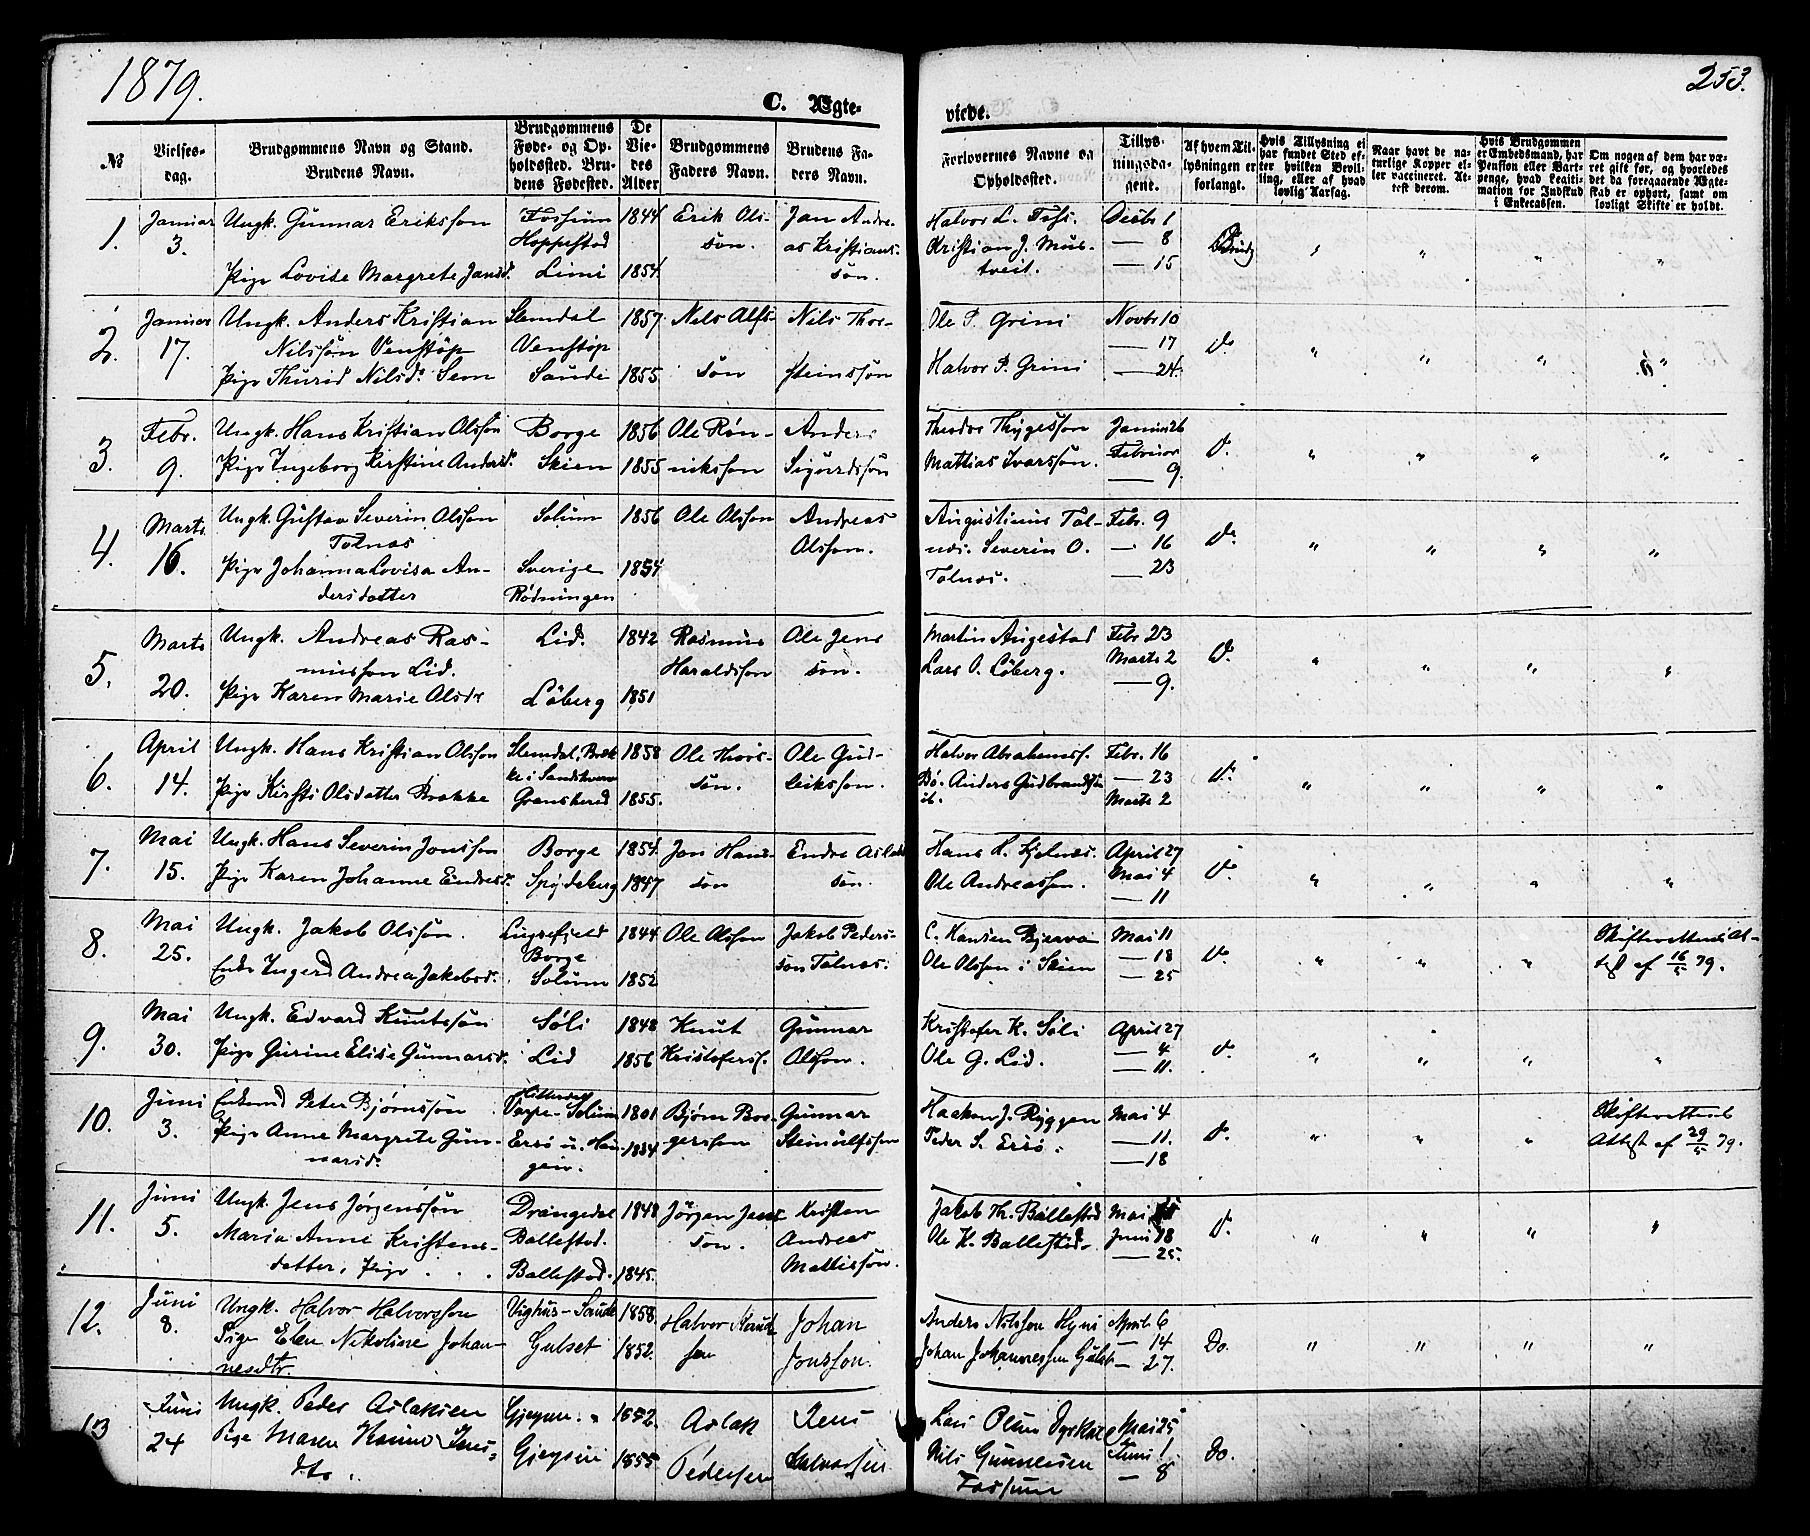 1879.
253.
C. Ægte-
viede.
№
Vielses-
dag.
Brudgommens Navn og Stand.
Brudens Navn.
Brudgommens
Føde- og Op-
holdssted. Bru-
dens Fødested.
De
Vie-
des
Alder
Brudgommens
Faders Navn.
Brudens Fa-
ders Navn.
Forlovernes Navne og
Opholdssted.
Tillys-
ningsda-
gene.
Af hvem Til-
lysningen er
forlangt.
Hvis Tillysning ei
har fundet Sted ef-
ter hvilken Bevil-
ling, eller af hvad
lovlig Aarsag.
Naar havt de na-
turlige Kopper el-
ler vaccineret. At-
test derom.
Hvis Brudgommen
er Embedsmand, har
Pension eller Vart-
penge, hvad Legiti-
mation for Indskud
i Enkecassen.
Om nogen af dem har væ-
ret gift før, og hvorledes
det da foregaaende Ægte-
skab er ophørt, samt om
lovligt Skifte er holdt.
1.
Januar
3.
Ungk. Gunnar Eriksson
Pige Lovise Margrete Jansd.
Fossum
Hoppestad
Limi
1844
1854
Erik Ols-
søn.
Jan Andre-
as Kristians-
søn.
Halvor L. Foss.
Kristian J. Mus-
tveit.
Decbr 1
— 8
— 15
Brudg
2.
Januar
17.
Ungk. Anders Kristian
Nilssøn Venstøp
Pige Thurid Nilsd. Sem
Slemdal
Venstøp
Saude
1857
1855
Nils Alfs-
søn
Nils Thor-
steinssøn
Ole P. Grini
Halvor P. Grini
Novbr 10
— 17
— 24.
D.
3.
Febr.
9.
Ungk. Hans Kristian Olssøn
Pige Ingeborg Kirstine Andersd.
Borge
Skien
1856
1855
Ole Røn-
nikssøn
Anders
Sigurdssøn
Theodor Thygessøn
Mattias Ivarssøn.
Januar 26
Februar
— 9.
D.
4.
Marts
16.
Ungk. Gustav Severin Olsson
Tolnæs
Pige Johanna Lovisa An-
dersdatter
Solum
Sverige
Rødningen
1856
1854
Ole Olsson
Andreas
Olsson.
Augustinus Tol-
næs. Severin O.
Tolnæs.
Febr. 9
— 16
— 23
D.
5.
Marts
20.
Ungk. Andreas Ras-
musson Lid.
Pige Karen Marie Olsdr
Lid.
Løberg
1842
1851
Rasmus
Haraldsson
Ole Jens
søn.
Martin Augestad
Lars O. Løberg.
Febr 23
Marts 2
— 9.
D.
6.
April
14.
Ungk. Hans Kristian Olsson
Pige Kirsti Olsdatter Brække
Slemdal, Bræk-
ke i Sandsherr
Gransherred
1858
1855.
Ole Thors-
søn.
Ole Gud-
leiksson.
Halvor Abrahamss.
Bø. Anders Gudbrandssøn
ib.
Febr. 16
— 23
Marts 2
D.
7.
Mai
15.
Ungk. Hans Severin Jonsson
Pige Karen Johanne Endresd.
Borge
Spydeberg
1854
1847
Jon Hans-
søn
Endre Aslak
søn.
Hans H. Kjelnæs.
Ole Andreassen.
April 27
Mai 4
— 11
D.
8.
Mai
25.
Ungk. Jakob Olssøn.
Enke Ingerd Andrea Jakobsd.
Luksefjeld
Borge
Solum
1844
1852
Ole Olsson
Jakob Peders-
søn Tolnæs.
C. Hansen Bjerva
Ole Olsson i Skien
Mai 11
— 18
— 25
D.
Skifterettens At-
test af 16/5 79.
9.
Mai
30.
Ungk. Edvard Knutssøn
Pige Gurine Elise Gunnarsd.
Søli
Lid
1848
1856
Knut
Kristofers.
Gunnar
Olsson.
Kristofer K. Søli
Ole G. Lid.
April 27
— 4
— 11.
D.
10.
Juni
3.
Enkemd Peter Bjørnssøn
Pige Anne Margrete Gun-
narsd.
Solum
Ersø u. Hau-
gen.
1801
1834
Bjørn Bor-
gersson
Gunnar
Steinulfssøn
Haakon J. Ryggen
Peder S. Ersø.
Mai 4
— 11.
— 18
D.
Skifterettens
Attest af 29/5 79.
11.
Juni
5.
Ungk. Jens Jørgenssøn
Maria Anne Kristens-
datter, Pige
Drangedal
Ballestad.
Ballestad.
1848
1845.
Jørgen Jens
søn.
Kristen
Andreas
Mattissøn.
Jakob Th. Ballestad
Ole K. Ballestad.
Mai
Juni 18
— 25.
D.
12.
Juni
8.
Ungk. Halvor Halvorsson
Pige Elen Nikoline Johan-
nesdtr.
Vighus-Saude
Gulset
1858.
1852.
Halvor Knud
sen
Johan
Jonsson.
Anders Nilsson Hyni
Johan Johannessen Gulset
April 6
— 14
— 27.
Do.
13
Juni
24
Ungk. Peder Aslaksen
Pige Maren Karine Jens-
dtr.
Gjeysen.
Gjeysen
1852.
1855
Aslak
Pedersen
Jens
Halvorsen
Lars Olsen Dyrkol
Nils Gunnleisen
Fossum
Mai 25,
Juni 1.
— 8
Do.